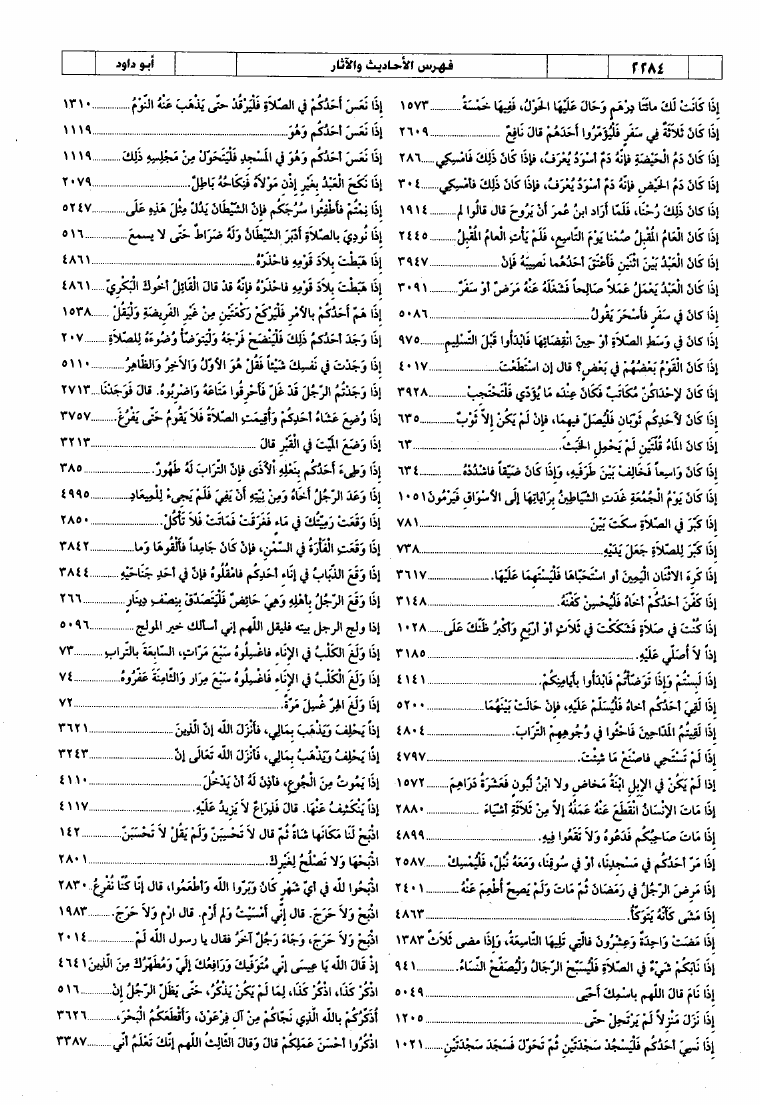 ٢٢٨٤ فهرس الأحاديث والآثار أبو داود
إِذَا كَانَتْ لَكَ مائَتَا دِرْهَمٍ وَحَالَ عَلَيْهَا الْحَوْلُ، فَفِيهَا خَمْسَةُ .......... ١٥٧٣
إِذَا كَانَ ثَلَاثَةٌ فِي سَفَرٍ فَلْيُؤَمِّرُوا أَحَدَهُمْ قَالَ نَافِعٌ .......... ٢٦٠٩
إِذَا كَانَ دَمُ الْحَيْضَةِ فَإِنَّهُ دَمٌ أَسْوَدُ يُعْرَفُ، فَإِذَا كَانَ ذَلِكَ فَأَمْسِكِي ..... ٢٨٦
إِذَا كَانَ دَمُ الْحَيْضِ فَإِنَّهُ دَمٌ أَسْوَدُ يُعْرَفُ، فَإِذَا كَانَ ذَلِكَ فَأَمْسِكِي ..... ٣٠٤
إِذَا كَانَ ذَلِكَ رُحْنَا، فَلَمَّا أَرَادَ ابنُ عُمَرَ أَنْ يَرُوحَ قال قالُوا لم ..... ١٩١٤
إِذَا كَانَ الْعَامُ المُقْبِلُ صُمْنَا يَوْمَ التَّاسِعِ، فَلَمْ يَأْتِ الْعامُ المُقْبِلُ ..... ٢٤٤٥
إِذَا كَانَ الْعَبْدُ بَيْنَ اثْنَيْنِ فَأَعْتَقَ أَحَدُهُما نَصِيبَهُ فَإِنْ .......... ٣٩٤٧
إِذَا كَانَ الْعَبْدُ يَعْمَلُ عَمَلاً صَالِحاً فَشَغَلَهُ عَنْهُ مَرَضٌ أَوْ سَفَرٌ ..... ٣٠٩١
إِذَا كانَ في سَفَرٍ فَأَسْحَرَ يَقُولُ .......... ٥٠٨٦
إِذَا كانَ في وَسَطِ الصَّلَاةِ أَوْ حِينَ انْقِضَائِهَا فَابْدَأُوا قَبْلَ التَّسْلِيمِ ..... ٩٧٥
إِذَا كَانَ الْقَوْمُ بَعْضُهُمْ في بَعْضٍ؟ قالَ إِن اسْتَطَعْتَ .......... ٤٠١٧
إِذَا كَانَ لإحْدَاكُنَّ مُكَاتَبٌ فَكَانَ عِنْدَه مَا يُؤَدِّي فَلْتَحْتَجِبْ ..... ٣٩٢٨
إِذَا كَانَ لأَحَدِكُم ثَوْبَانِ فَلْيُصَلِّ فِيهِمَا، فإنْ لَمْ يَكُنْ إلاَّ ثَوْبٌ ..... ٦٣٥
إِذَا كانَ المَاءُ قُلَّتَيْنِ لَمْ يَحْمِلِ الْخَبَثَ. .......... ٦٣
إِذَا كَانَ وَاسِعاً فَخَالِفْ بَيْنَ طَرَفَيْهِ، وَإِذَا كَانَ ضَيِّقاً فَاشْدُدْهُ ..... ٦٣٤
إِذَا كَانَ يَوْمُ الْجُمُعَةِ غَدَتِ الشَّيَاطِينُ بِرَايَاتِهَا إِلَى الأَسْوَاقِ فَيَرْمُونَ ١٠٥١
إِذَا كَبَّرَ في الصَّلَاةِ سكَتَ بَيْنَ .......... ٧٨١
إِذَا كَبَّرَ لِلصَّلَاةِ جَعَلَ يَدَيْهِ .......... ٧٣٨
إِذَا كَرِهَ الاثْنَانِ الْيَمِينَ أَوِ اسْتَحَبَّاهَا فَلْيَسْتَهِمَا عَلَيْهَا. .......... ٣٦١٧
إِذَا كَفَّنَ أَحَدُكُمْ أَخَاهُ فَلْيُحْسِنْ كَفَنَهُ. .......... ٣١٤٨
إِذَا كُنْتَ فِي صَلَاةٍ فَشَكَكْتَ في ثَلَاثٍ أَوْ أَرْبَعٍ وَأَكْبَرُ ظَنِّكَ عَلَى ..... ١٠٢٨
إِذَاً لاَ أُصَلِّيَ عَلَيْهِ. .......... ٣١٨٥
إِذَا لَبِسْتُمْ وَإِذَا تَوَضَّأْتُمْ فَابْدَأُوا بِأَيَامِنِكُمْ. .......... ٤١٤١
إِذَا لَقِيَ أَحَدُكُم أَخاهُ فَلْيُسَلِّمْ عَلَيْهِ، فَإِنْ حَالَتْ بَيْنَهُمَا .......... ٥٢٠٠
إِذَا لَقِيتُمُ المَدَّاحِينَ فَاحْثُوا في وُجُوهِهِمْ التُّرَابَ. .......... ٤٨٠٤
إِذَا لَمْ تَسْتَحي فاصْنَعْ مَا شِئْتَ. .......... ٤٧٩٧
إِذَا لَمْ يَكُنْ فِي الإبِلِ ابْنَةُ مَخَاضٍ ولا ابْنُ لَبُونٍ فَعَشَرَةُ دَرَاهِمَ ..... ١٥٧٢
إِذَا مَاتَ الإِنْسَانُ انْقَطَعَ عَنْهُ عَمَلُهُ إِلاَّ مِنْ ثَلَاثَةِ أَشْيَاءَ ..... ٢٨٨٠
إِذَا مَاتَ صَاحِبُكُم فَدَعُوهُ وَلاَ تَقَعُوا فِيهِ. .......... ٤٨٩٩
إِذَا مَرَّ أَحَدُكُم في مَسْجِدِنَا، أَوْ في سُوقِنَا، وَمَعَهُ نَبْلٌ، فَلْيُمْسِكْ ..... ٢٥٨٧
إِذَا مَرِضَ الرَّجُلُ في رَمَضَانَ ثُمَّ مَاتَ وَلَمْ يَصِحَّ أُطْعِمَ عَنْهُ ..... ٢٤٠١
إِذَا مَشَى كَأَنَّهُ يَتَوَكَّأُ. .......... ٤٨٦٣
إِذَا مَضَتْ وَاحِدَةٌ وَعِشْرُونَ فالَّتي تَلِيهَا التَّاسِعَةُ، وَإِذَا مضى ثَلَاثٌ ١٣٨٣
إِذَا نَابَكُمْ شَيْءٌ في الصَّلَاةِ فَلْيُسَبِّحْ الرِّجَالُ وَلْيُصَفِّحِ النِّسَاءُ. ..... ٩٤١
إِذَا نَامَ قالَ اللَّهم باسْمِكَ أَحْيَى .......... ٥٠٤٩
إِذَا نَزَلَ مَنْزِلاً لَمْ يَرْتَحِلْ حتَّى .......... ١٢٠٥
إِذَا نَسِيَ أَحَدُكُم فَلْيَسْجُدْ سَجْدَتَيْنِ ثُمَّ تَحَوَّلَ فَسَجَدَ سَجْدَتَيْنِ ..... ١٠٢١
إِذَا نَعَسَ أَحَدُكُمْ فِي الصَّلَاةِ فَلْيَرْقُدْ حتَّى يَذْهَبَ عَنْهُ النَّوْمُ ..... ١٣١٠
إِذَا نَعَسَ أَحَدُكُم وَهُوَ .......... ١١١٩
إِذَا نَعَسَ أَحَدُكُم وَهُوَ في المَسْجِدِ فَلْيَتَحَوَّلْ مِنْ مَجْلِسِهِ ذَلِكَ ..... ١١١٩
إِذَا نَكَحَ الْعَبْدُ بِغَيْرِ إِذْنِ مَوْلاَهُ فَنِكَاحُهُ بَاطِلٌ. .......... ٢٠٧٩
إِذَا نِمْتُمْ فأَطْفِئُوا سُرُجَكُم فإنَّ الشَّيْطَانَ يَدُلُّ مِثْلَ هَذِهِ عَلَى ..... ٥٢٤٧
إِذَا نُودِيَ بالصَّلَاةِ أَدْبَرَ الشَّيْطَانُ وَلَهُ ضُرَاطٌ حَتَّى لا يسمعَ ..... ٥١٦
إِذَا هَبَطْتَ بِلَادَ قَوْمِهِ فاحْذَرْهُ .......... ٤٨٦١
إِذَا هَبَطْتَ بِلَادَ قَوْمِهِ فاحْذَرْهُ فإِنَّهُ قدْ قالَ الْقَائِلُ أَخُوكَ الْبَكْرِيُّ ..... ٤٨٦١
إِذَا هَمَّ أَحَدُكُمْ بالأَمْرِ فَلْيَرْكَعْ رَكْعَتَيْنِ مِنْ غَيْرِ الْفَرِيضَةِ وَلْيَقُلْ ..... ١٥٣٨
إِذَا وَجَدَ أَحَدُكُمْ ذَلِكَ فَلْيَنْضَحْ فَرْجَهُ وَلْيَتَوَضَّأْ وُضُوءَهُ لِلصَّلَاةِ ..... ٢٠٧
إِذَا وَجَدْتَ في نَفْسِكَ شَيْئاً فَقُلْ هُوَ الأَوَّلُ وَالآخِرُ والظَّاهِرُ ..... ٥١١٠
إِذَا وَجَدْتُمُ الرَّجُلَ قَدْ غَلَّ فأَحْرِقُوا مَتَاعَهُ وَاضْرِبُوهُ. قالَ فَوَجَدْنَا ..... ٢٧١٣
إِذَا وُضِعَ عَشَاءُ أَحَدِكُمْ وَأُقِيمَتِ الصَّلَاةُ فَلاَ يَقُومُ حَتَّى يَفْرُغَ. ..... ٣٧٥٧
إِذَا وَضَعَ المَيِّتَ في الْقَبْرِ قالَ .......... ٣٢١٣
إِذَا وَطِىءَ أَحَدُكُم بِنَعْلِهِ الْأَذَى فإنَّ التُّرَابَ لَهُ طَهُورٌ. ..... ٣٨٥
إِذَا وَعَدَ الرَّجُلُ أَخَاهُ وَمِنْ نِيَّتِهِ أَنْ يَفِيَ فَلَمْ يَجِىءْ لِلْمِيعَادِ ..... ٤٩٩٥
إِذَا وَقَعَتْ رَمِيَّتُكَ في مَاءٍ فَغَرَقَتْ فَمَاتَتْ فَلاَ تَأْكُلْ. .......... ٢٨٥٠
إِذَا وَقَعَتِ الْفَأْرَةُ في السَّمْنِ، فإنْ كَانَ جَامِداً فأَلْقُوهَا وَما ..... ٣٨٤٢
إِذَا وَقَعَ الذُّبَابُ في إِنَاءِ أَحَدِكُم فامْقُلُوهُ فإِنَّ في أَحَدِ جَنَاحَيْهِ ..... ٣٨٤٤
إِذَا وَقَعَ الرَّجُلُ بِأَهْلِهِ وَهِيَ حَائِضٌ فَلْيَتَصَدَّقْ بِنِصْفِ دِينَارٍ ..... ٢٦٦
إذا ولج الرجل بيته فليقل اللهم إني أسألك خير المولج ..... ٥٠٩٦
إِذَا وَلَغَ الْكَلْبُ في الإِنَاءِ فَاغْسِلُوهُ سَبْعَ مَرَّاتٍ، السَّابِعَةَ بالتُّرابِ ..... ٧٣
إِذَا وَلَغَ الْكَلْبُ في الإِنَاءِ فَاغْسِلُوهُ سَبْعَ مِرَارٍ وَالثَّامِنَةَ عَفِّرُوهُ ..... ٧٤
إِذَا وَلَغَ الهِرُّ غُسِلَ مَرَّةً. .......... ٧٢
إِذَاً يَحْلِفُ وَيَذْهَبُ بِمَالِي، فأَنْزَلَ الله إِنَّ الَّذِينَ .......... ٣٦٢١
إِذَاً يَحْلِفُ وَيَذْهَبُ بِمَالِي، فأَنْزَلَ الله تَعَالَى إِنَّ .......... ٣٢٤٣
إِذَاً يَمُوتُ مِنَ الْجُوعِ، فأذِنَ لَهُ أَنْ يَدْخُلَ .......... ٤١١٠
إِذَاً يَنْكَشِفُ عَنْهَا. قالَ فَذِرَاعٌ لاَ يَزِيدُ عَلَيْهِ. .......... ٤١١٧
اذْبَحْ لَنَا مَكَانَهَا شَاةً ثُمَّ قالَ لاَ تَحْسِبَنَّ وَلَمْ يَقُلْ لاَ تَحْسَبَنَّ ..... ١٤٢
اذْبَحْهَا وَلاَ تَصْلُحُ لِغَيْرِكَ. .......... ٢٨٠١
اذْبَحُوا لله في أَيِّ شَهْرٍ كَانَ وَبَرُّوا الله وَأَطْعِمُوا، قالَ إِنَّا كُنَّا نُفْرِعُ ٢٨٣٠
اذْبَحْ وَلاَ حَرَجَ. قال إِنِّي أَمْسَيْتُ وَلم أَرْمِ. قال ارْمِ وَلاَ حَرَجَ. ..... ١٩٨٣
اذْبَحْ وَلاَ حَرَجَ، وَجَاءَ رَجُلٌ آخَرُ فقال يا رسول الله لَمْ ..... ٢٠١٤
إِذْ قالَ الله يَا عِيسَى إِنِّي مُتَوَفِّيكَ وَرَافِعُكَ إِلَيَّ وَمُطَهِّرُكَ مِنَ الَّذِينَ ٤٦٤١
اذْكُرْ كَذَا، اذْكُرْ كَذَا، لِمَا لَمْ يَكُنْ يَذْكُرُ، حتَّى يَظَلَّ الرَّجُلُ إِنْ ..... ٥١٦
أُذَكِّرُكُمْ بالله الَّذِي نَجَّاكُمْ مِنْ آلِ فِرْعَوْنَ، وَأَقْطَعَكُمُ الْبَحْرَ، ..... ٣٦٢٦
اذْكُرُوا أَحْسَنَ عَمَلِكُمْ قالَ وَقالَ الثَّالِثُ اللَّهم إِنَّكَ تَعْلَمُ أَنِّي ..... ٣٣٨٧